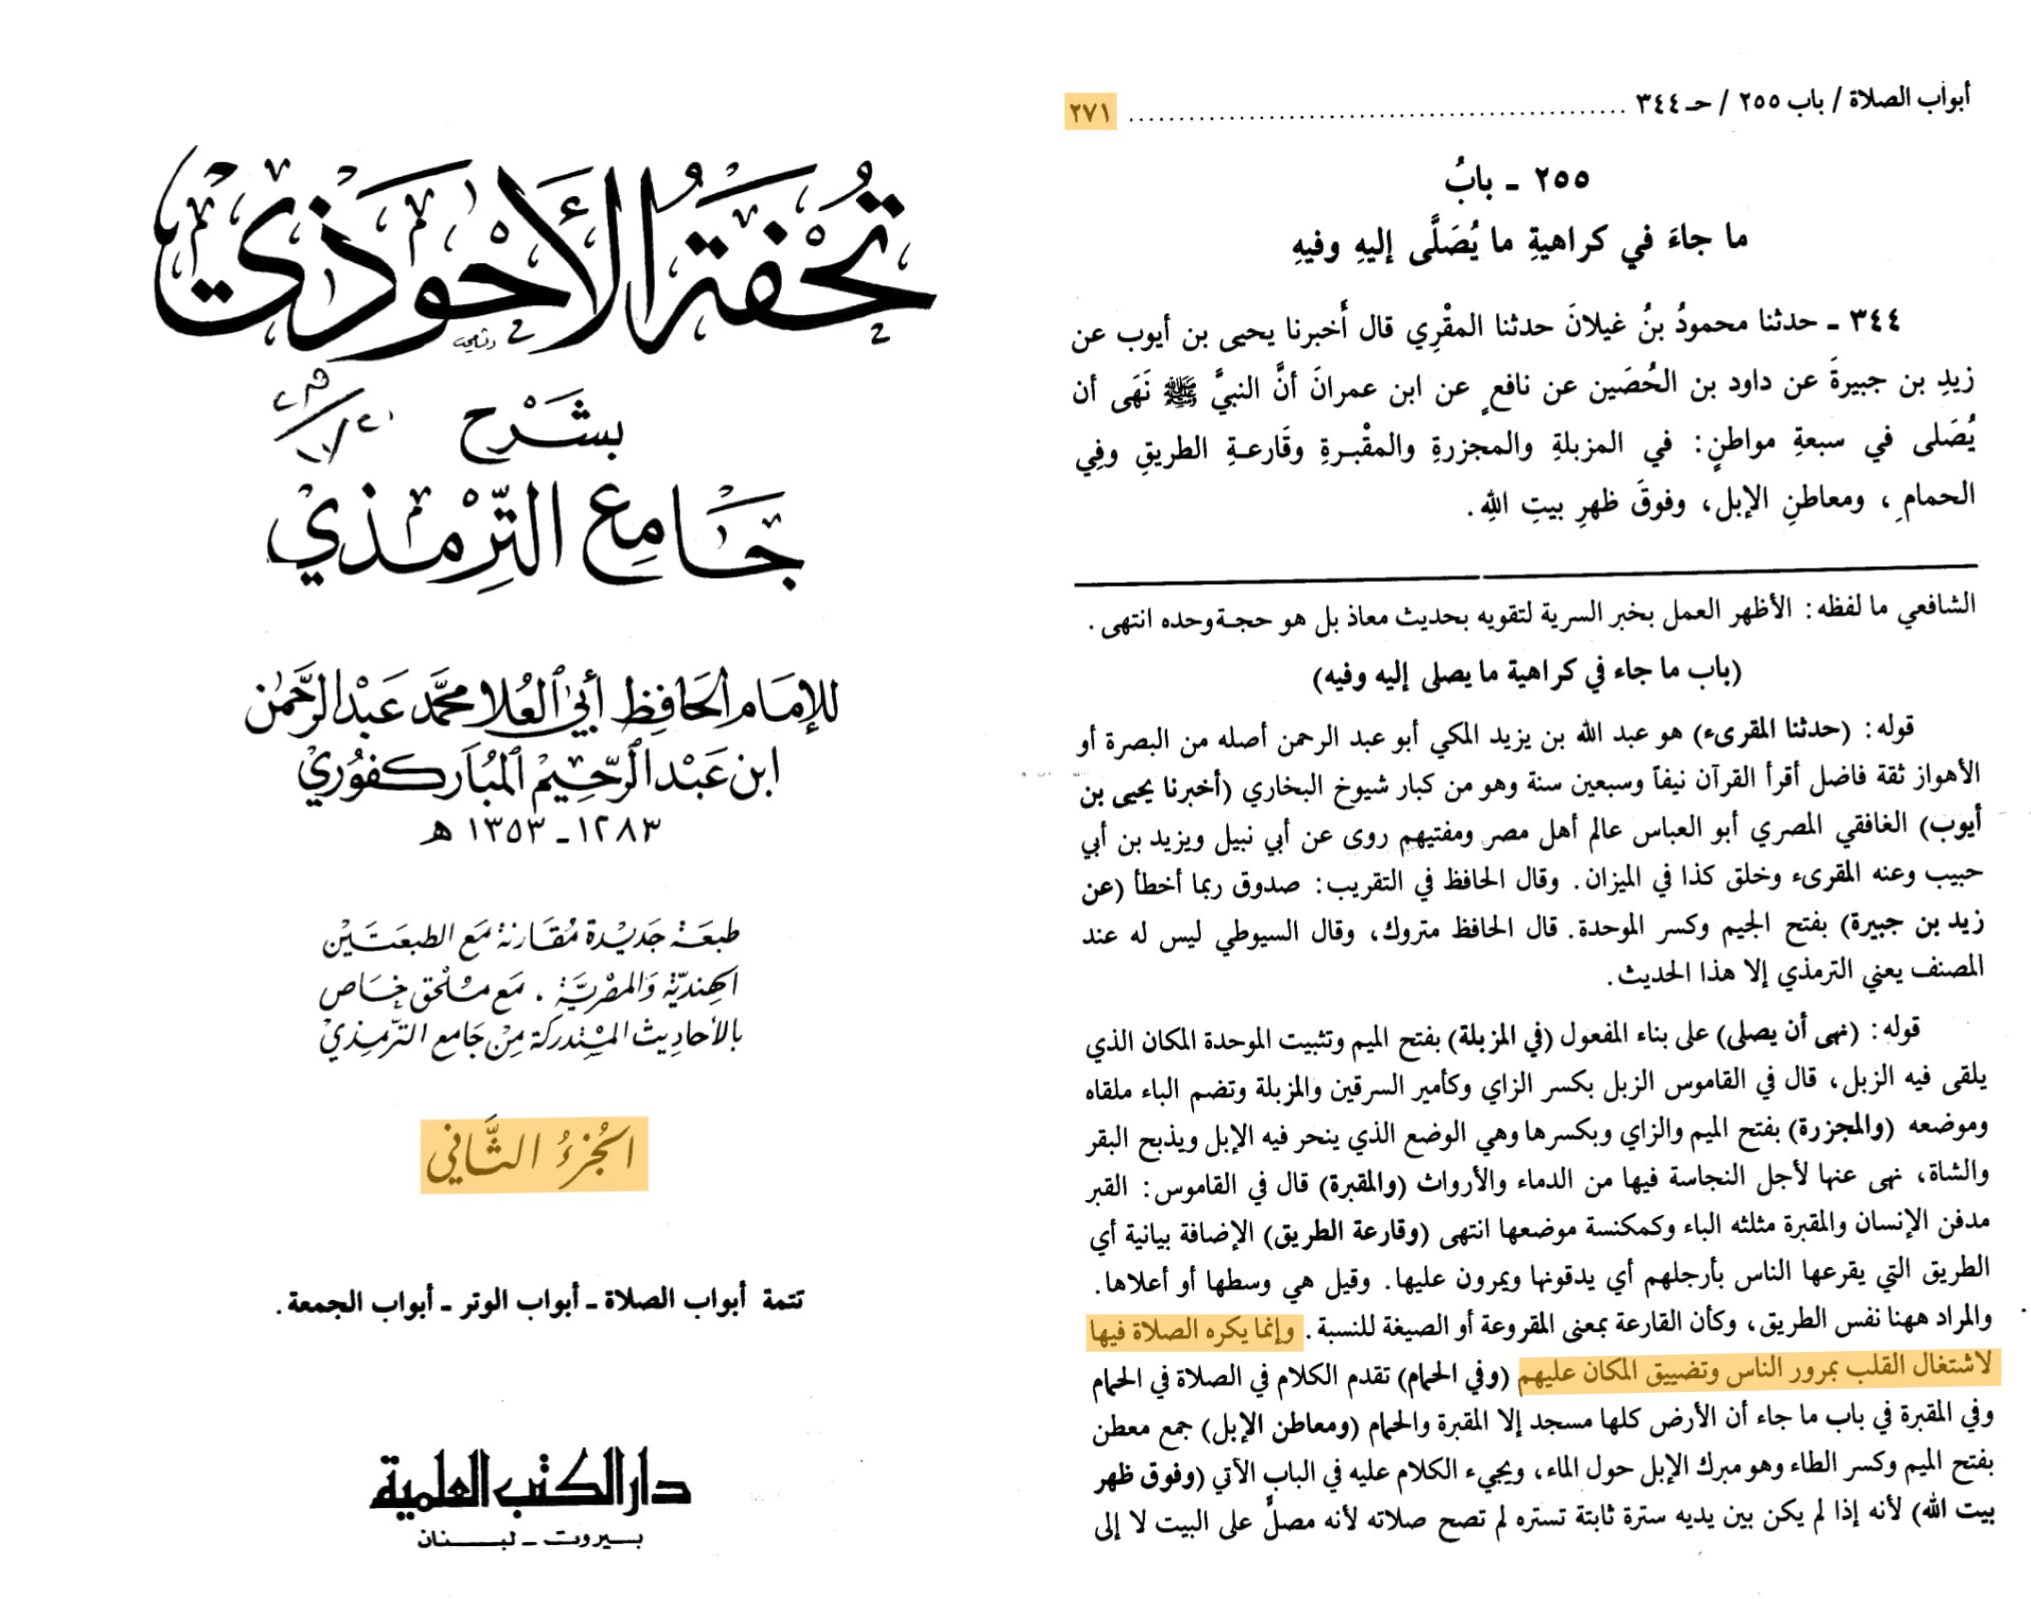 تُحفَةُ الأَحْوَذي
بشَرْح
جَامِع التِّرمْذي
للإمَام الحَافِظ أبي العُلا محمَّد عَبْد الرَّحمٰن
ابن عَبْد الرّحِيْم المُبَاركفوُري
١٢٨٣ - ١٣٥٣ ه
طبعَة جَديْدة مُقَارنة مَع الطبعَتَين
الهنديّة وَالمصْريَّة . مَع مُلْحق خَاص
بالأحَادِيث المسْتدركة مِنْ جَامع الترّمذيْ
الجُزءُ الثَّاني
تتمة أبواب الصلاة - أبواب الوتر - أبواب الجمعة .
دار الكتب العلمية
بيروت - لبنان
أبواب الصلاة / باب ٢٥٥ / حـ ٣٤٤ ........ ٢٧١
٢٥٥ - بابُ
ما جاءَ في كراهيةِ ما يُصَلَّى إليهِ وفيهِ
٣٤٤ - حدثنا محمودُ بنُ غيلانَ حدثنا المقْرِي قال أَخبرنا يحيى بن أيوب عن
زيدِ بن جبيرةَ عن داود بن الحُصَين عن نافعٍ عن ابن عمرانَ أنَّ النبيَّ ﷺ نَهَى أن
يُصَلى في سبعةِ مواطنٍ: في المزبلةِ والمجزرةِ والمقْبرةِ وقَارعةِ الطريقِ وفِي
الحمامِ، ومعاطنِ الإبل، وفوقَ ظهرِ بيتِ اللهِ.
الشافعي ما لفظه: الأظهر العمل بخبر السرية لتقويه بحديث معاذ بل هو حجة وحده انتهى.
(باب ما جاء في كراهية ما يصلى إليه وفيه)
قوله: (حدثنا المقرىء) هو عبد الله بن يزيد المكي أبو عبد الرحمن أصله من البصرة أو
الأهواز ثقة فاضل أقرأ القرآن نيفاً وسبعين سنة وهو من كبار شيوخ البخاري (أخبرنا يحيى بن
أيوب) الغافقي المصري أبو العباس عالم أهل مصر ومفتيهم روى عن أبي نبيل ويزيد بن أبي
حبيب وعنه المقرىء وخلق كذا في الميزان. وقال الحافظ في التقريب: صدوق ربما أخطأ (عن
زيد بن جبيرة) بفتح الجيم وكسر الموحدة. قال الحافظ متروك، وقال السيوطي ليس له عند
المصنف يعني الترمذي إلا هذا الحديث.
قوله: (نهى أن يصلى) على بناء المفعول (في المزبلة) بفتح الميم وتثبيت الموحدة المكان الذي
يلقى فيه الزبل، قال في القاموس الزبل بكسر الزاي وكأمير السرقين والمزبلة وتضم الباء ملقاه
وموضعه (والمجزرة) بفتح الميم والزاي وبكسرها وهي الوضع الذي ينحر فيه الإبل ويذبح البقر
والشاة، نهى عنها لأجل النجاسة فيها من الدماء والأرواث (والمقبرة) قال في القاموس: القبر
مدفن الإنسان والمقبرة مثلثه الباء وكمكنسة موضعها انتهى (وقارعة الطريق) الإضافة بيانية أي
الطريق التي يقرعها الناس بأرجلهم أي يدقونها ويمرون عليها. وقيل هي وسطها أو أعلاها.
والمراد ههنا نفس الطريق، وكأن القارعة بمعنى المقروعة أو الصيغة للنسبة. وإنما يكره الصلاة فيها
لاشتغال القلب بمرور الناس وتضييق المكان عليهم (وفي الحمام) تقدم الكلام في الصلاة في الحمام
وفي المقبرة في باب ما جاء أن الأرض كلها مسجد إلا المقبرة والحمام (ومعاطن الإبل) جمع معطن
بفتح الميم وكسر الطاء وهو مبرك الإبل حول الماء، ويجيء الكلام عليه في الباب الآتي (وفوق ظهر
بيت الله) لأنه إذا لم يكن بين يديه سترة ثابتة تستره لم تصح صلاته لأنه مصلٍّ على البيت لا إلى